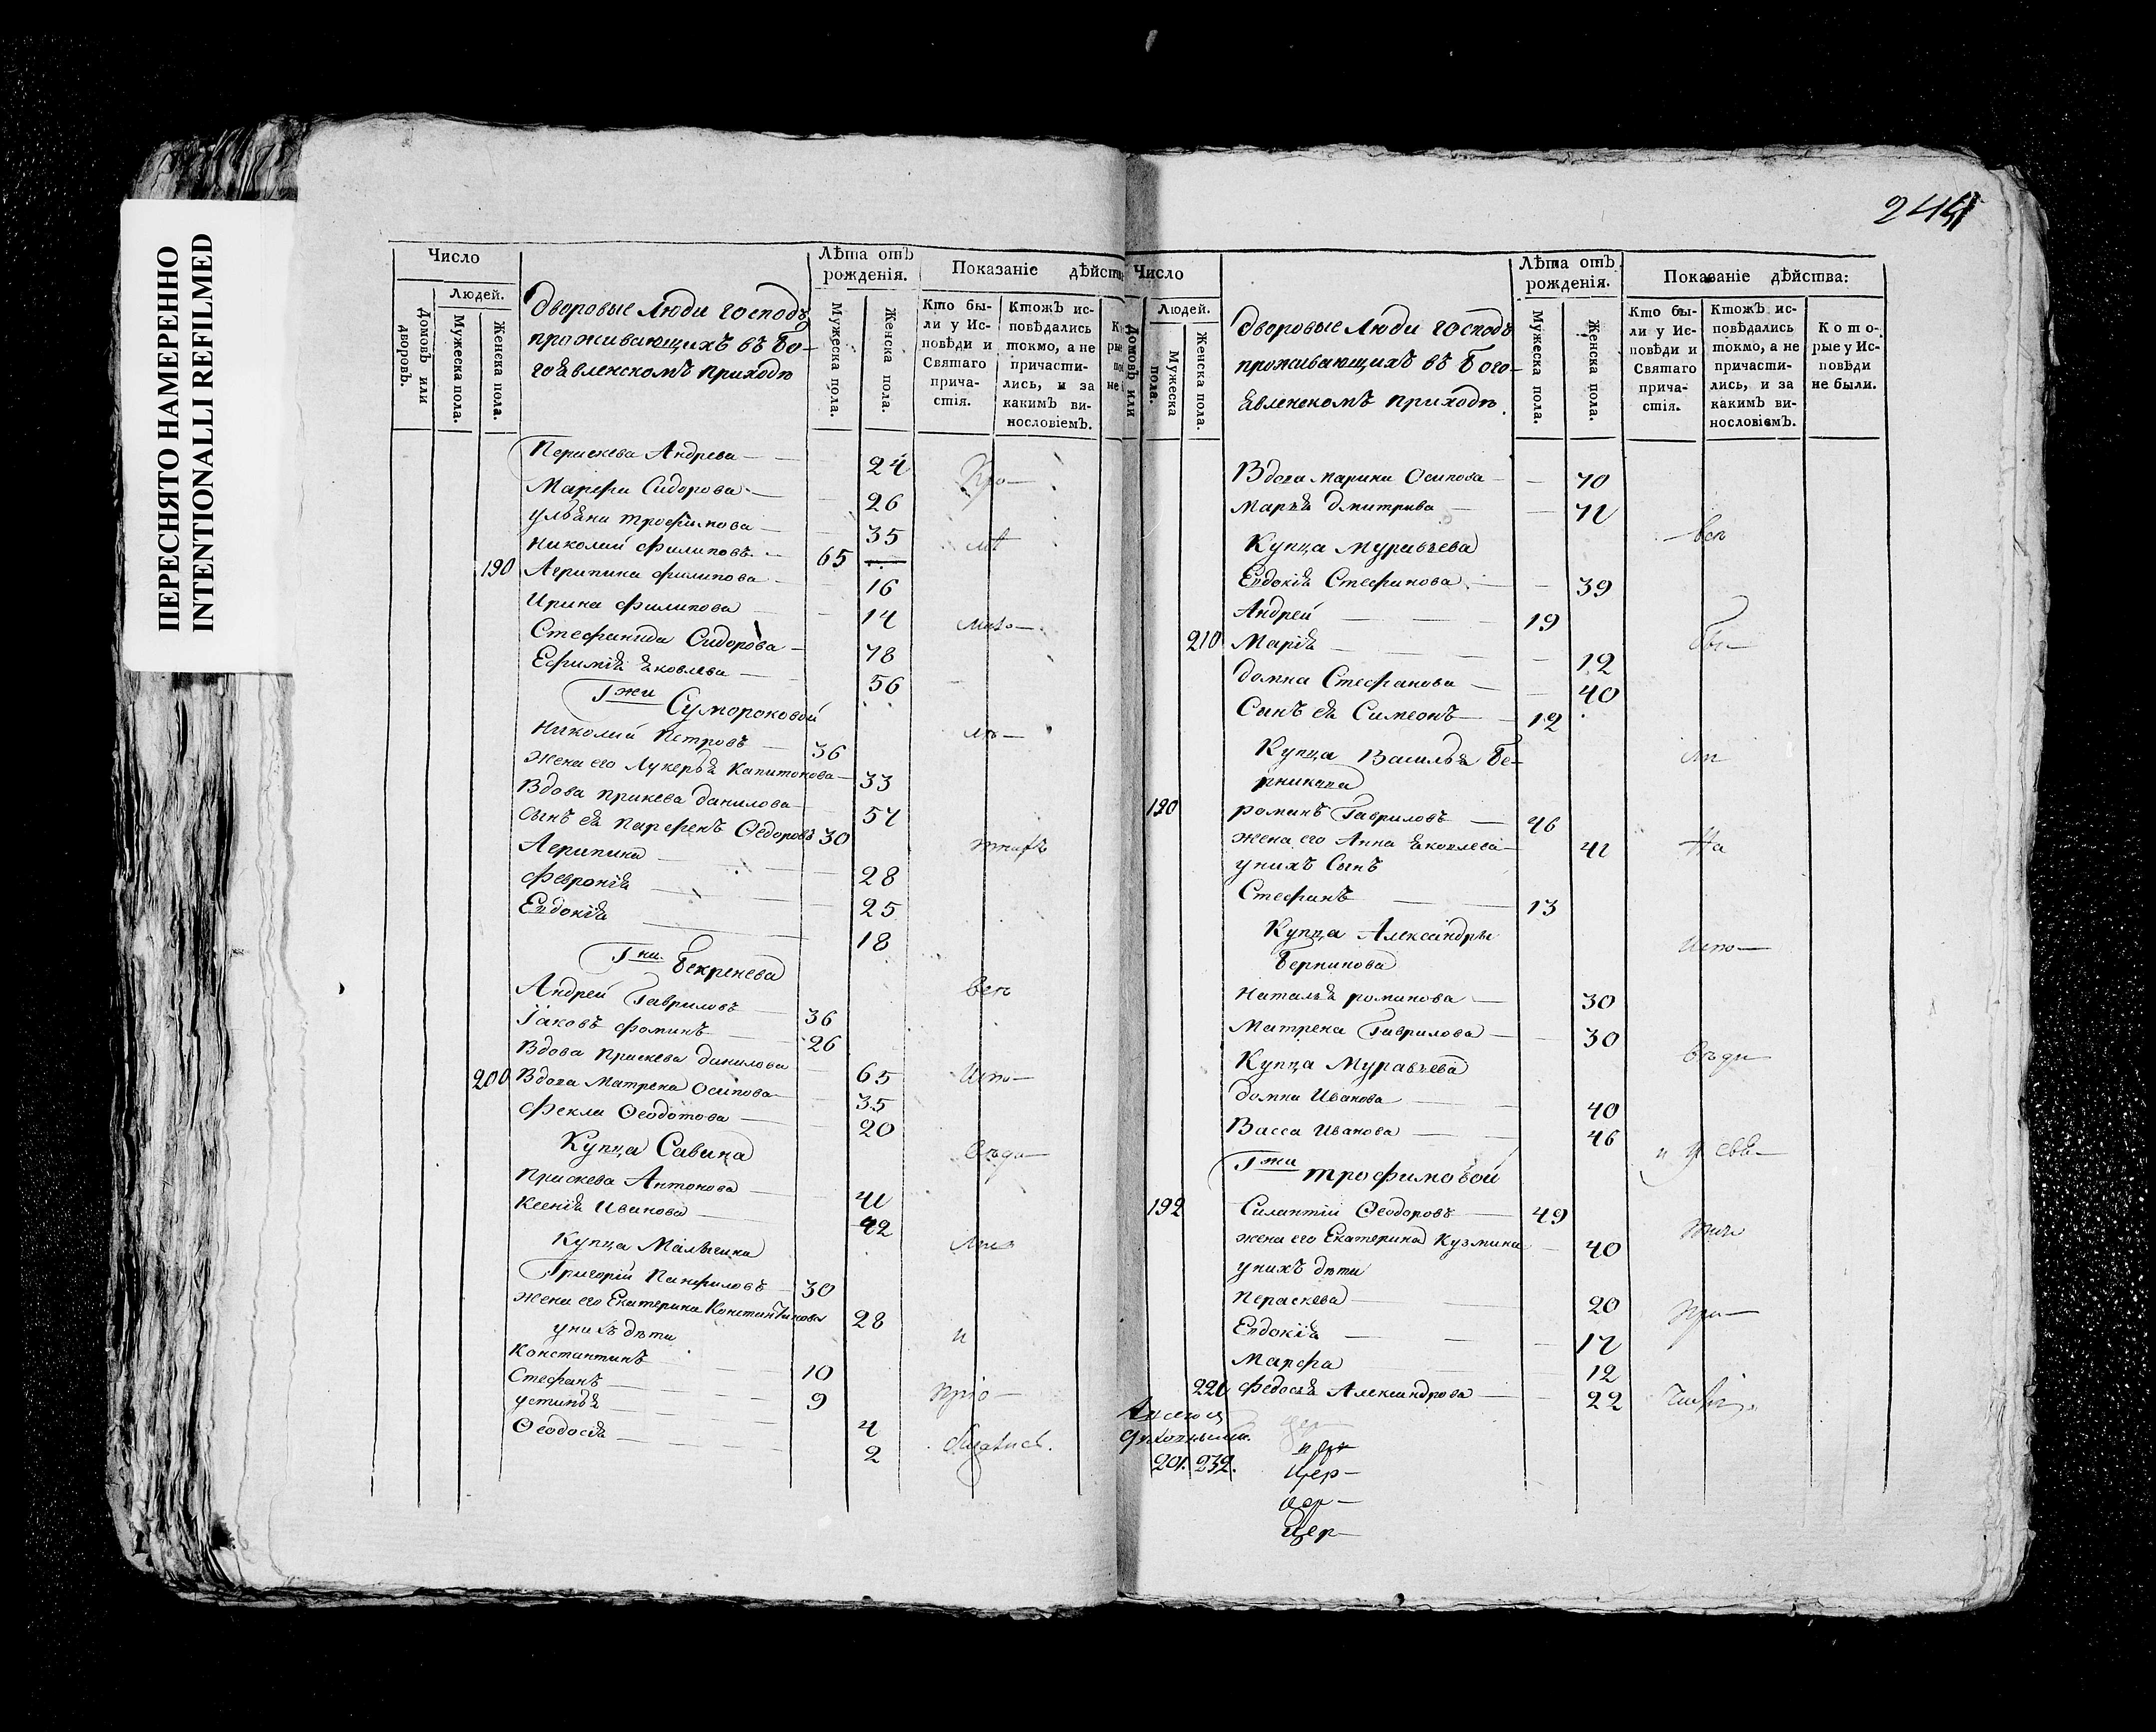 ПЕРЕСНЯТО НАМЕРЕННО
INTENTIONALLI REFILMED
Число
Людей.
Домовъ или дворовъ.
Мужеска пола.
Женска пола.
Дворовые Люди господъ
проживающихъ въ Бо-
гоявленскомъ приходѣ
Лѣта отъ
рожденія.
Мужеска пола.
Женска пола.
Показаніе дѣйств
Кто бы-
ли у Ис-
повѣди и
Святаго
прича-
стія.
Ктожъ ис-
повѣдались
токмо, а не
причасти-
лись, и за
какимъ ви-
нословіемъ.
Параскева Андреева 24
Марфа Сидорова 26
Ульяна Трофимова 35
Николай Филиповъ 65
190 Агрипина Филипова 16
Ирина Филипова 14
Стефанида Сидорова 78
Ефимія Яковлева 56
Гжи Сумороковой
Николай Петровъ 36
Жена его Лукерья Капитонова 33
Вдова Праскева Данилова 57
Сынъ ея Парфенъ Ѳедоровъ 30
Агрипина 28
Февронія 25
Евдокія 18
Гна Бекренева
Андрей Гавриловъ 36
Іаковъ Фоминъ 26
Вдова Праскева Данилова 65
200 Вдова Матрена Осипова 35
Фекла Ѳеодотова 20
Купца Савина
Праскева Антонова 41
Ксенія Иванова 42
Купца Малыгина
Григорій Панфиловъ 30
Жена его Екатерина Константинова 28
у нихъ дѣти
Константинъ 10
Стефанъ 9
Устинья 4
Ѳеодосія 2
244
Число
Людей.
Домовъ или
Мужеска пола.
Женска пола.
Дворовые Люди господъ
проживающихъ въ Бого-
явленскомъ приходѣ.
Лѣта отъ
рожденія.
Мужеска пола.
Женска пола.
Показаніе дѣйства:
Кто бы-
ли у Ис-
повѣди и
Святаго
прича-
стія.
Ктожъ ис-
повѣдались
токмо, а не
причасти-
лись, и за
какимъ ви-
нословіемъ.
Кото-
рые у Ис-
повѣди
не были.
Вдова Марина Осипова 70
Марья Дмитрива 71
Купца Муравьева
Евдокія Стефанова 39
Андрей 19
210 Марія 12
Домна Стефанова 40
Сынъ ея Симеонъ 12
Купца Василья Бе-
рникова
190 Романъ Гавриловъ 46
Жена его Анна Яковлева 41
у нихъ Сынъ
Стефанъ 13
Купца Александры
Берникова
Наталья Романова 30
Матрена Гаврилова 30
Купца Муравьева
Домна Иванова 40
Васса Иванова 46
Гжи Трофимовой
192 Силантій Ѳеодоровъ 49
жена его Екатерина Кузмина 40
у нихъ дѣти
Параскева 20
Евдокія 17
Марфа 12
221 Федосья Александрова 22
201. 232.
Цер
Цер